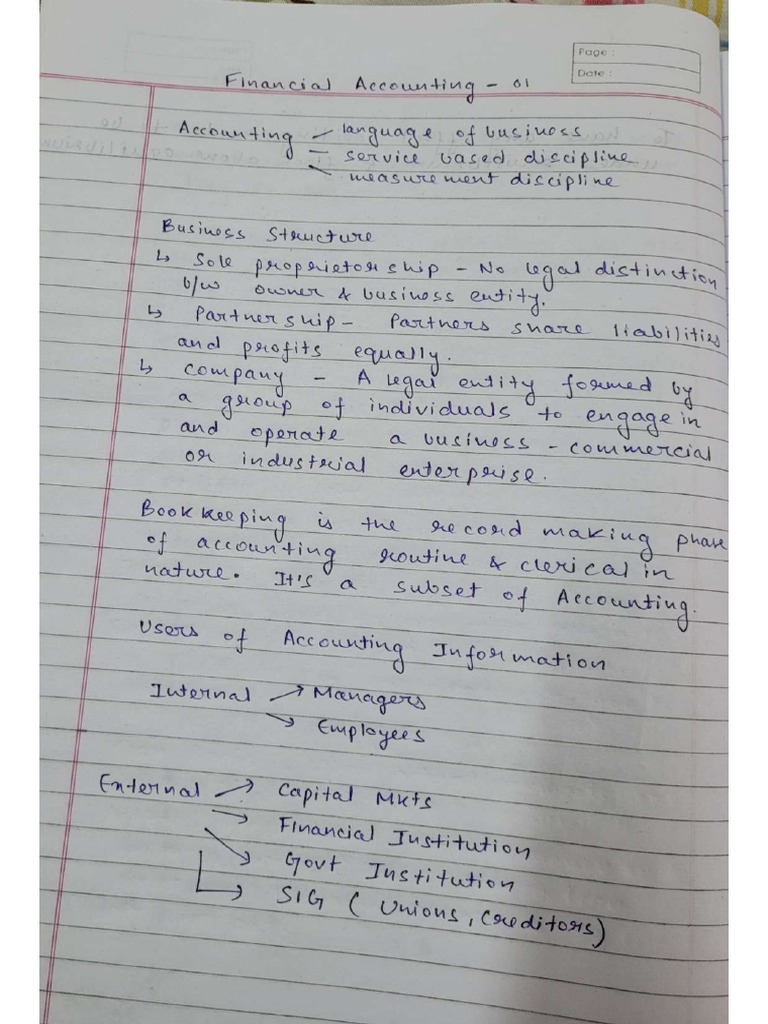 Page :
Date :
Financial Accounting - 01
Accounting - language of business
- service based discipline
- measurement discipline
Business Structure
↳ Sole proprietorship - No legal distinction
b/w owner & business entity.
↳ Partnership - Partners share liabilities
and profits equally.
↳ Company - A legal entity formed by
a group of individuals to engage in
and operate a business - commercial
or industrial enterprise.
Bookkeeping is the record making phase
of accounting routine & clerical in
nature. It's a subset of Accounting.
Users of Accounting Information
Internal → Managers
→ Employees
External → Capital Mkts
→ Financial Institution
→ Govt Institution
→ SIG ( Unions, Creditors)